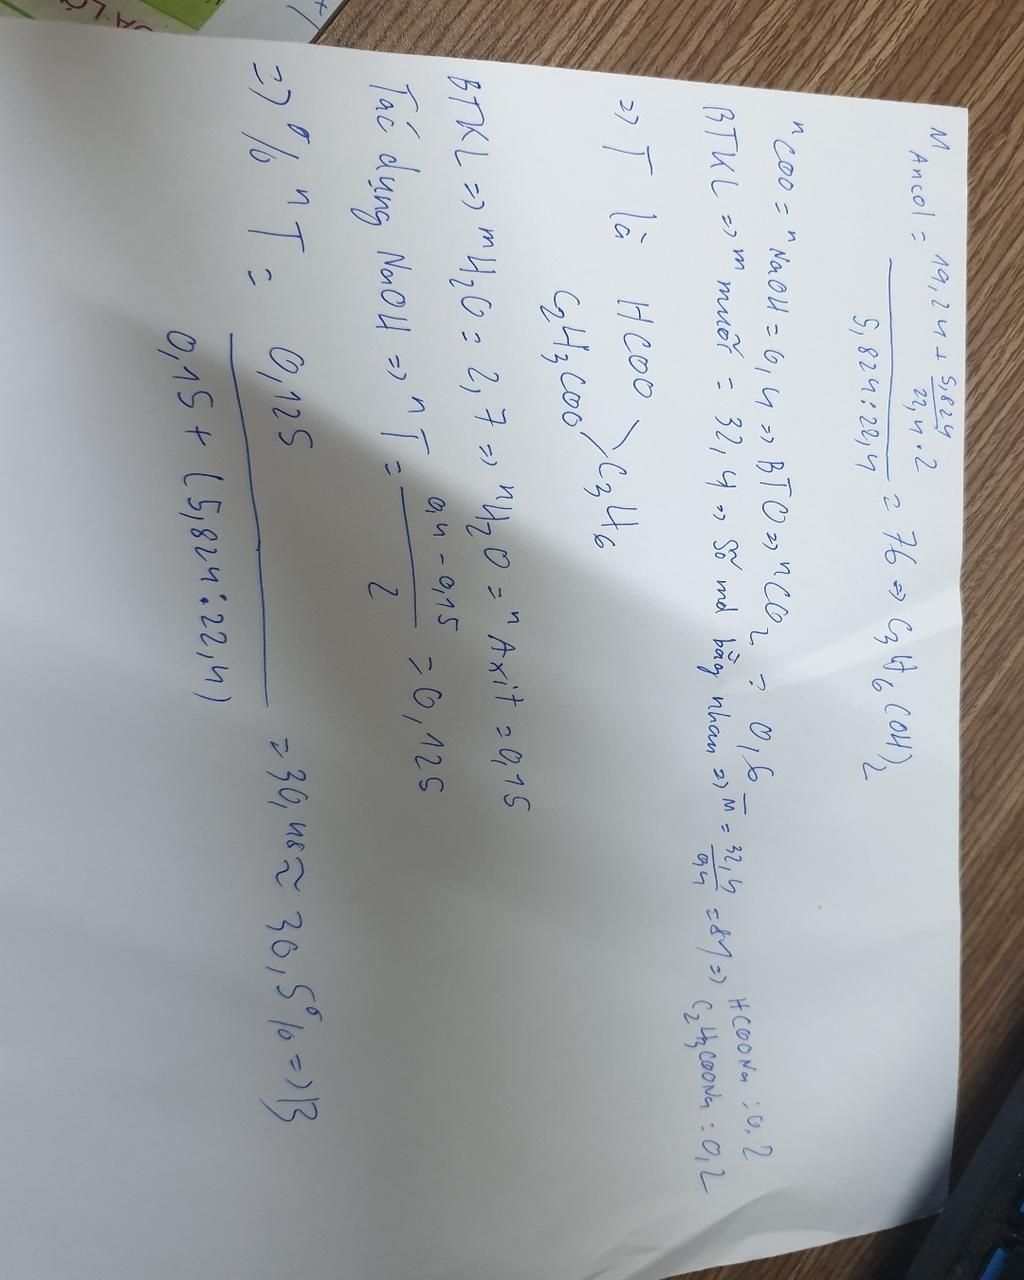 M Ancol = 19,24 + 5,824/22,4 . 2 / 5,824:22,4 = 76 => C3H6(OH)2
nCOO = nNaOH = 0,4 => BTO => nCO2 = 0,6
BTKL => m muối = 32,4 => Số mol bằng nhau => M̅ = 32,4/0,4 = 81 => HCOONa : 0,2
C2H3COONa : 0,2
=> T là HCOO \ C3H6
C2H3COO /
BTKL => mH2O = 2,7 => nH2O = nAxit = 0,15
Tác dụng NaOH => nT = 0,4 - 0,15 / 2 = 0,125
=> % nT = 0,125 / 0,15 + (5,824:22,4) = 30,48 ≈ 30,5% => B